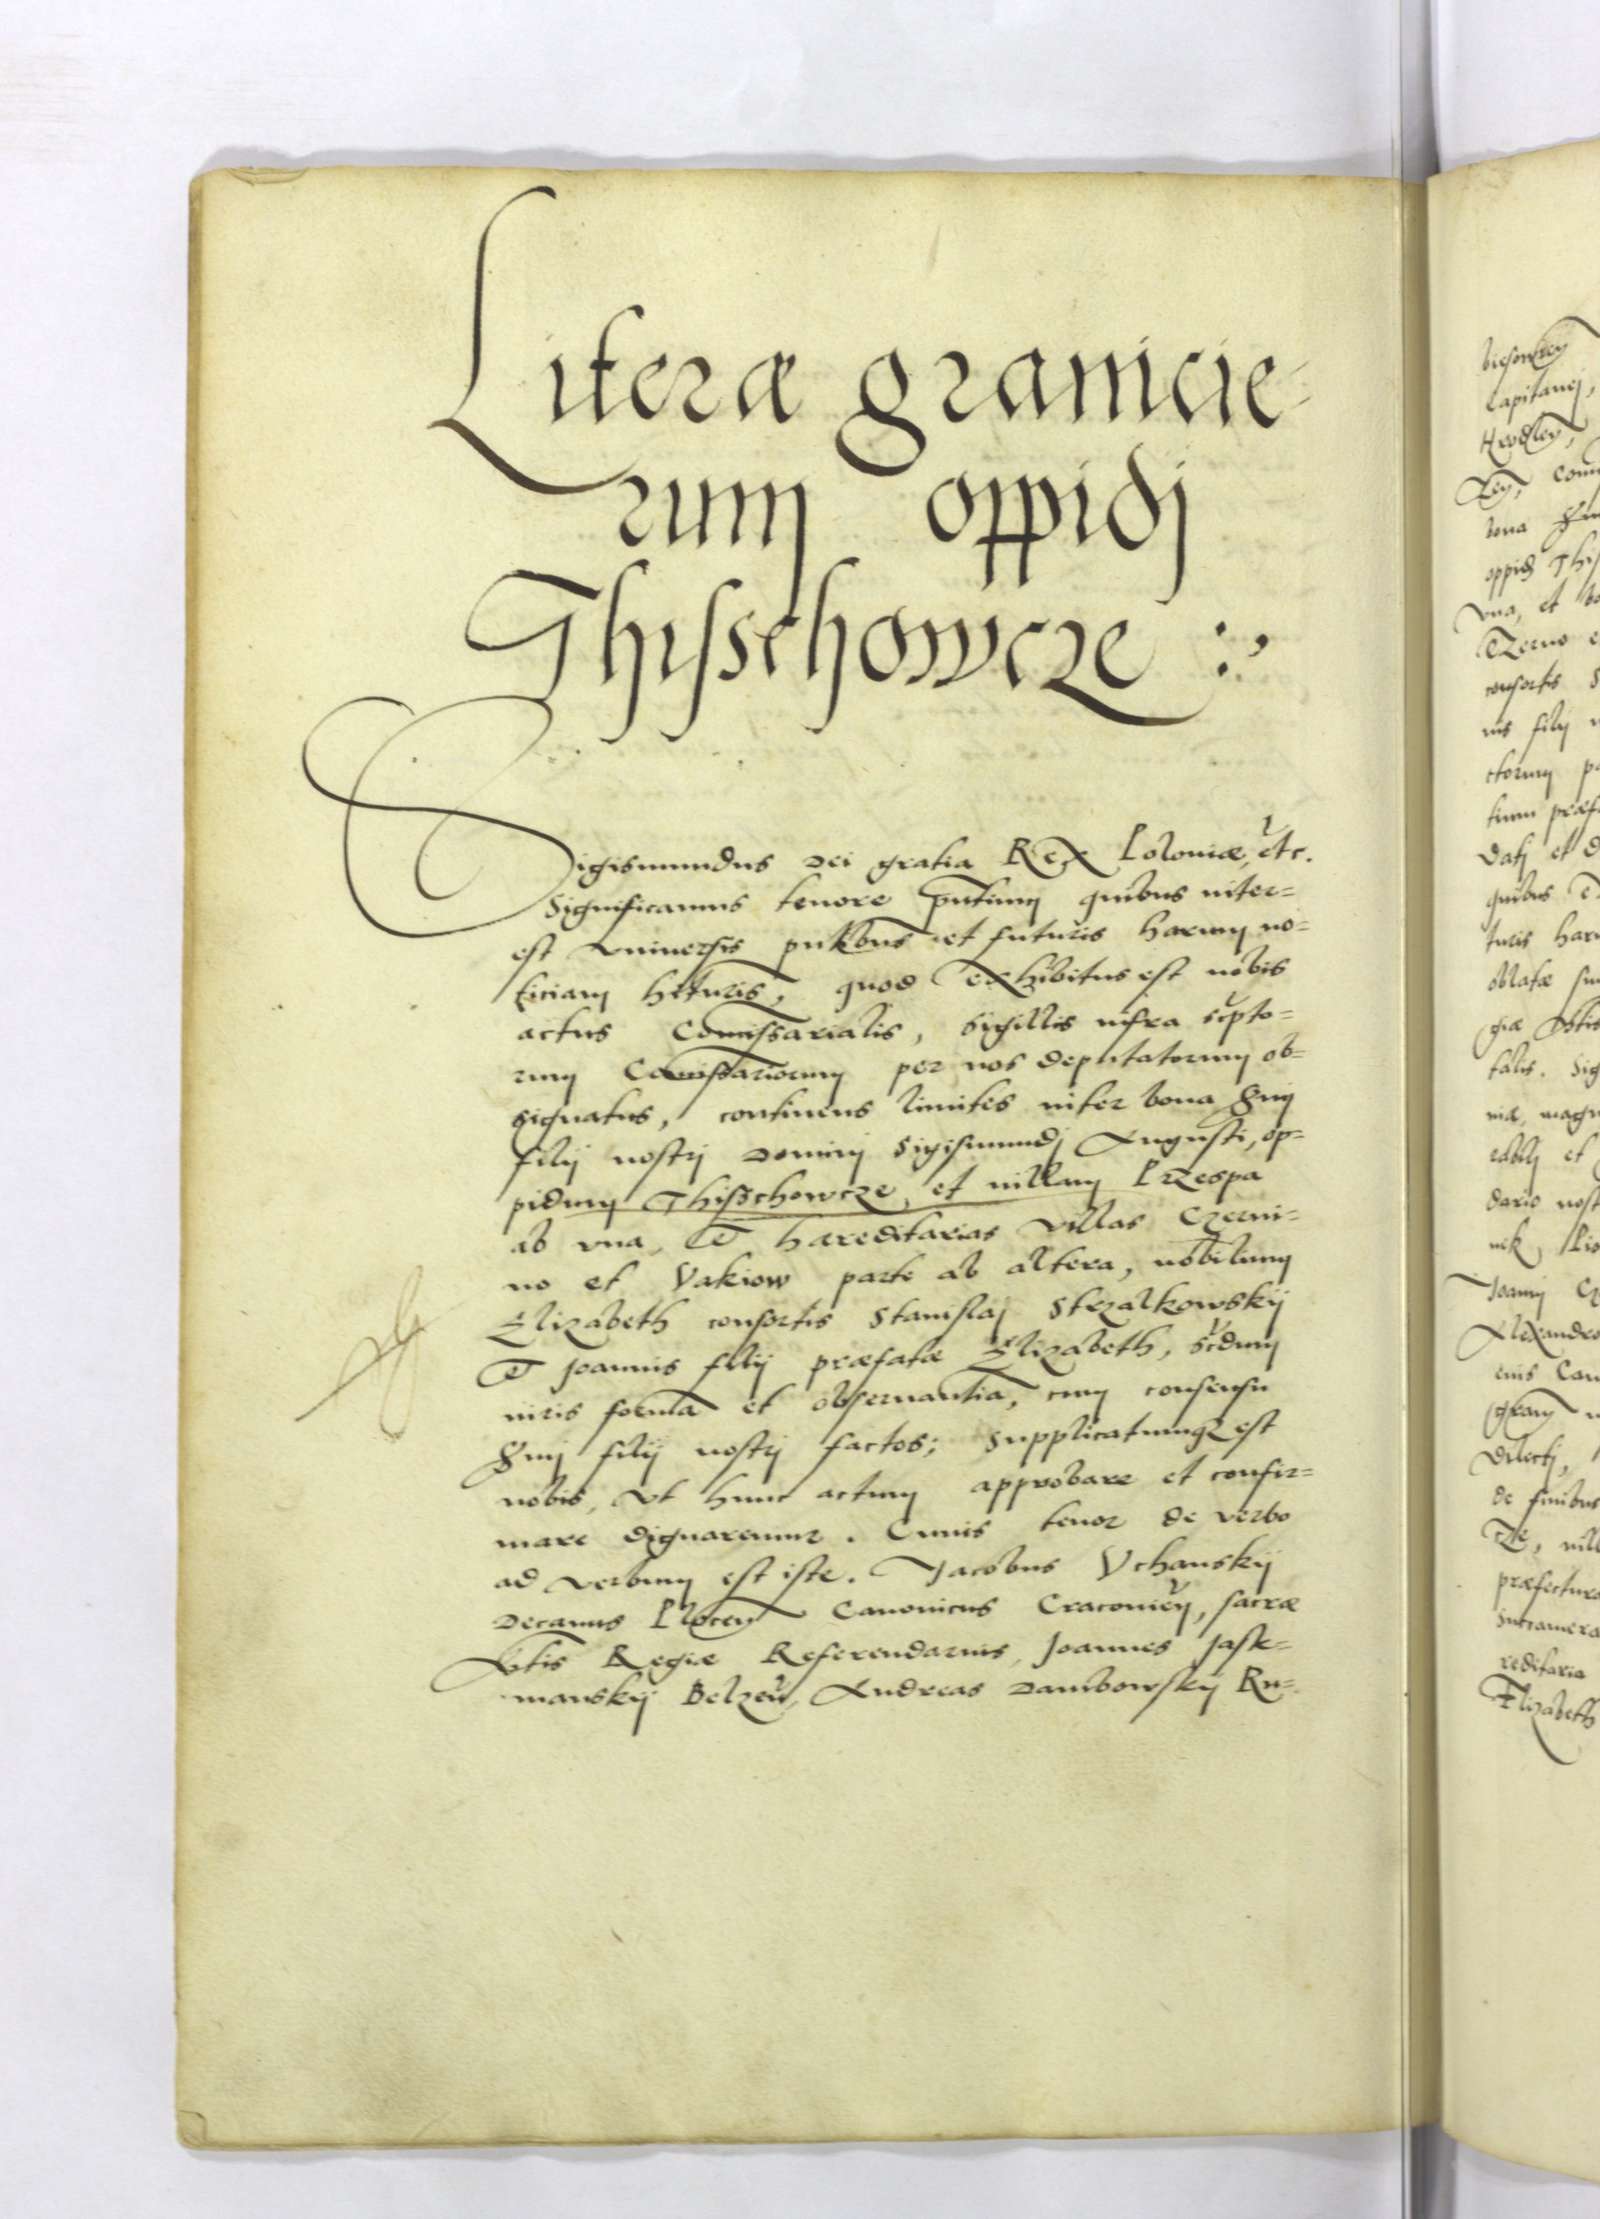 Literæ granicie-
rum oppidj
Thisschowcze :,
Sigismundus Dei gratia Rex Poloniæ, etc.
Significamus tenore pntium quibus inter=
est Vniuersis pntibus et futuris harum no=
ticiam hituris, quod exhibitus est nobis
actus Comissarialis, sigillis infra scpto=
rum Comissariorum per nos deputatorum ob=
signatus, continens limites inter bona Smi
filij nostrj Dominj Sigismundj Augusti, op=
pidum Thisschowcze, et villam Przespa
ab vna, et hæreditarias villas Czerni=
no et Vakiow parte ab altera, nobilium
Elizabeth consortis Stanislaj Strzalkowskij
et Joannis filij præfatæ Elizabeth, scdum
iuris forma et obseruantia, cum consensu
Smi filij nostrj factos; supplicatumqz est
nobis, vt hunc actum approbare et confir=
mare dignaremur. Cuius tenor de verbo
ad verbum est iste. Jacobus Vchanskij
Decanus Plocen Canonicus Cracouien, sacræ
Mtis Regiæ Referendarius, Joannes Jask=
manskij Belzen, Andreas Dambowskij Ru=
biesowien
Capitanej,
Hrodlen,
bona
oppid This
vna, et
Czerno
consortis
nis filij
ctorum
tium præf
Datj et
quibus
turis har
oblatæ
giæ Mtis
talis. Sig
niæ, mag
et
dario nost
Joann Cz
Alexandro
gram
Dilectj,
de finibus
cze, vill
præfectur
Succamera
reditaria
Elizabeth